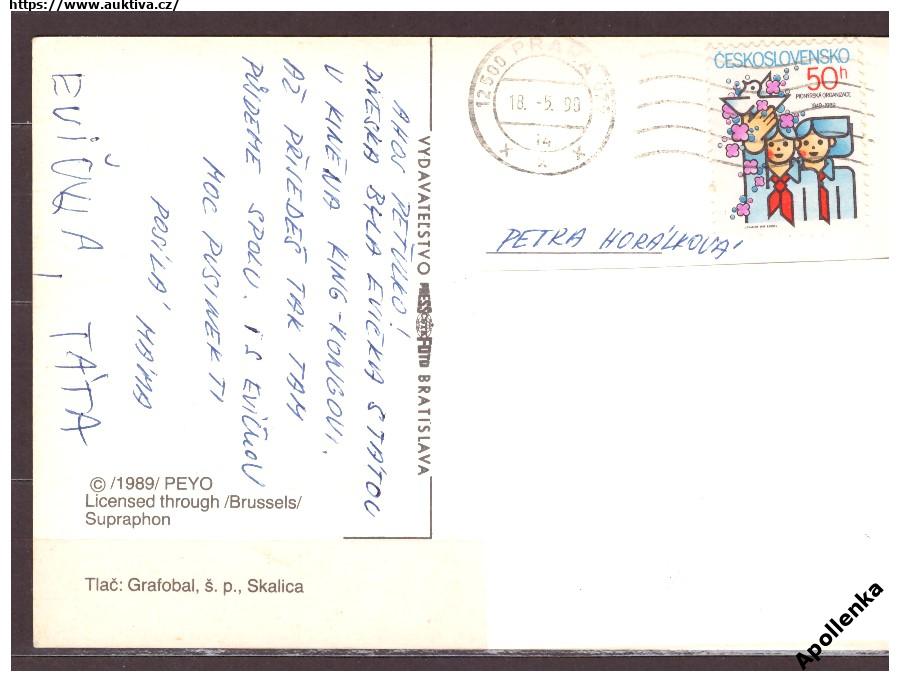 https://www.auktiva.cz/
AHOJ PEŤULKO!
DNESKA BYLA EVIČKA S TÁTOU
V KINĚ NA KING-KONGOVI.
AŽ PŘIJEDEŠ TAK TAM
PŮJDEME SPOLU. I S EVIČKOU
MOC PUSINEK TI
POSÍLÁ MAMA
EVIČKA, TÁTA
VYDAVATEĽSTVO PRESSFOTO BRATISLAVA
12500 PRAHA
18.-5.90
14
ČESKOSLOVENSKO
50h
PIONÝRSKÁ ORGANIZACE
1949-1989
PETRA HORÁLKOVÁ
© /1989/ PEYO
Licensed through /Brussels/
Supraphon
Tlač: Grafobal, š. p., Skalica
Apollenka